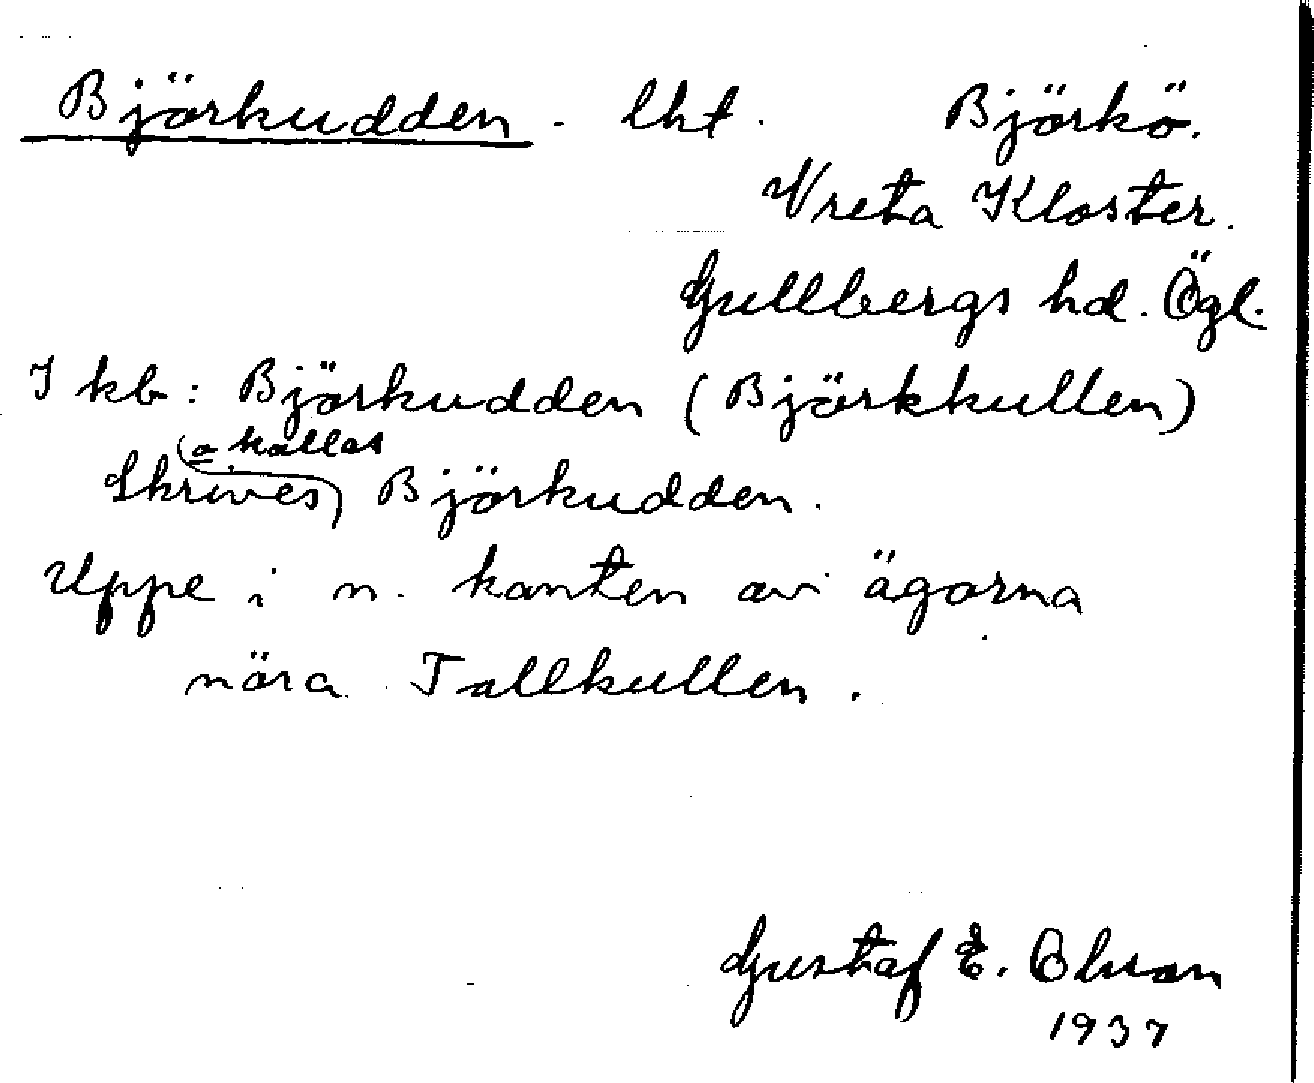 Björkudden. lht. Björkö.
Vreta Kloster.
Gullbergs hd. Ögl.
I kb: Björkudden (Björkkullen)
o. kallas
Skrives Björkudden.
Uppe i n. kanten av ägorna
nära Tallkullen.
Gustaf E. Olsson
1937